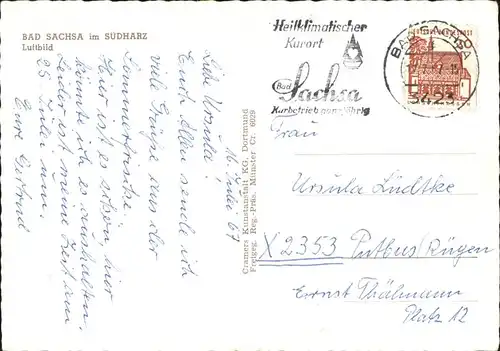 BAD SACHSA im SÜDHARZ
Luftbild
16. Juli 67
Liebe Ursula!
Euch Allen sende ich
viele Grüße aus der
Sommerfrische.
Hier ist es schön, hier
könnte ich es aushalten.
Leider ist meine Zeit am
25. Juli um.
Eure Gertrud
Cramers Kunstanstalt KG, Dortmund
Freigeg. Reg.-Präs. Münster Cr. 6029
Heilklimatischer
Kurort
Bad
Sachsa
Kurbetrieb ganzjährig
BAD SACHSA
3423
Frau
Ursula Lüdtke
X 2353 Putbus Rügen
Ernst Thälmann
Platz 12